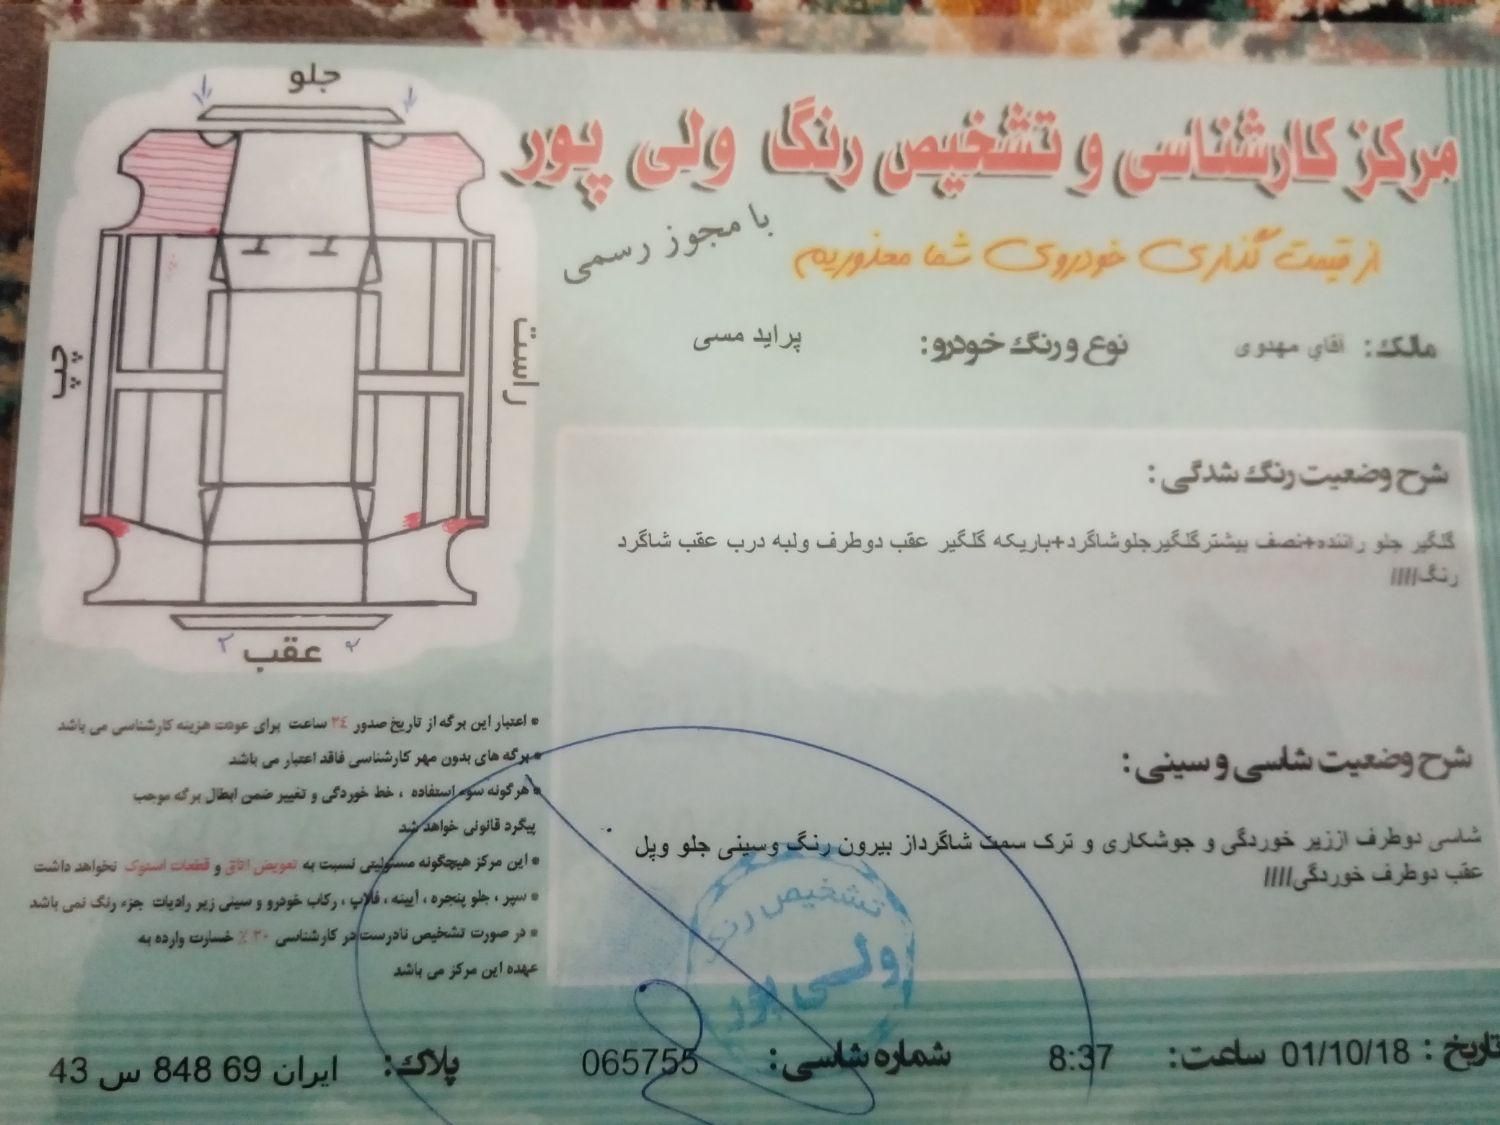 مرکز کارشناسی و تشخیص رنگ ولی پور
با مجوز رسمی
از قیمت گذاری خودروی شما معذوریم
مالک: آقای مهدوی
نوع و رنگ خودرو: پراید مسی
جلو
چپ
راست
۲ عقب ۲
شرح وضعیت رنگ شدگی :
گلگیر جلو راننده+نصف بیشترگلگیرجلوشاگرد+باریکه گلگیر عقب دوطرف ولبه درب عقب شاگرد
رنگ////
شرح وضعیت شاسی و سینی :
شاسی دوطرف اززیر خوردگی و جوشکاری و ترک سمت شاگرداز بیرون رنگ وسینی جلو وپل
عقب دوطرف خوردگی////
* اعتبار این برگه از تاریخ صدور ۲۴ ساعت برای عودت هزینه کارشناسی می باشد
* برگه های بدون مهر کارشناسی فاقد اعتبار می باشد
* هرگونه سوء استفاده ، خط خوردگی و تغییر ضمن ابطال برگه موجب
پیگرد قانونی خواهد شد
* این مرکز هیچگونه مسئولیتی نسبت به تعویض اتاق و قطعات استوک نخواهد داشت
* سپر ، جلو پنجره ، آیینه ، قالپاق ، رکاب خودرو و سینی زیر رادیات جزء رنگ نمی باشد
* در صورت تشخیص نادرست در کارشناسی ۳۰ ٪ خسارت وارده به
عهده این مرکز می باشد
تشخیص رنگ
ولی پور
تاریخ : 01/10/18 ساعت: 8:37 شماره شاسی: 065755 پلاک: ایران 69 848 س 43